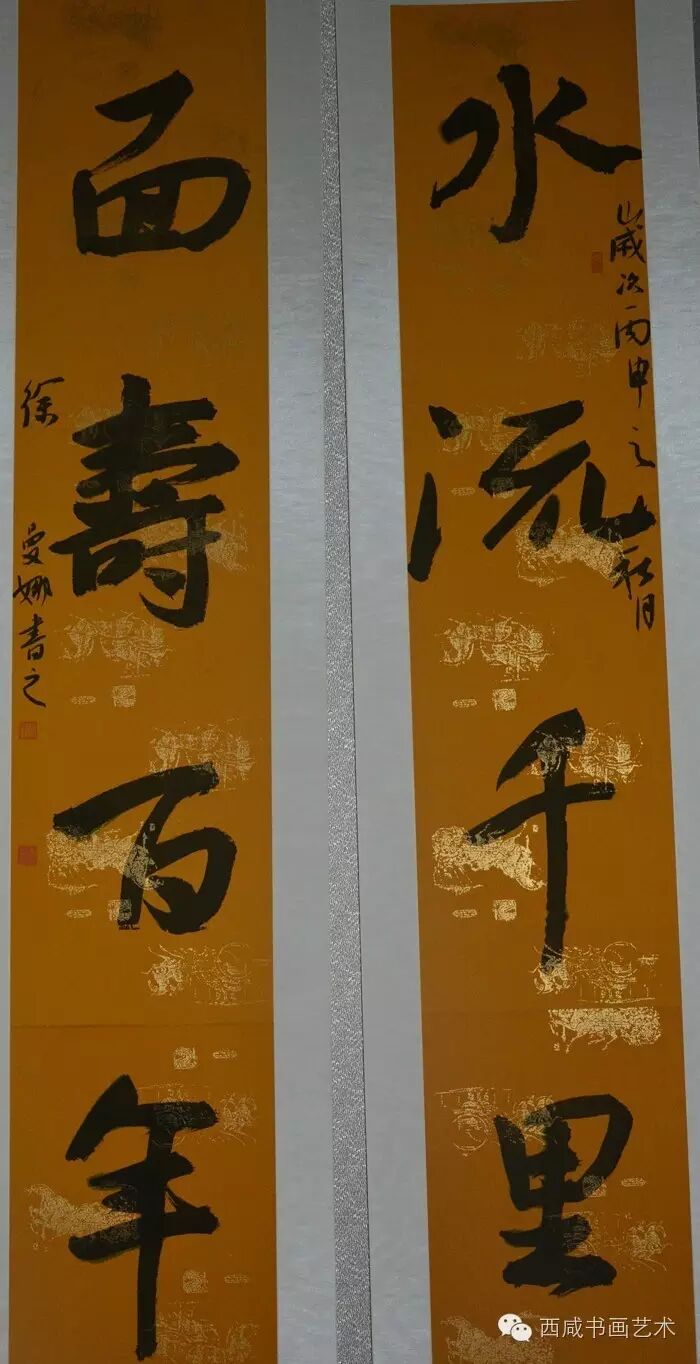 水流千里
歲次丙申之秋月
面壽百年
徐曼娜書之
西咸书画艺术